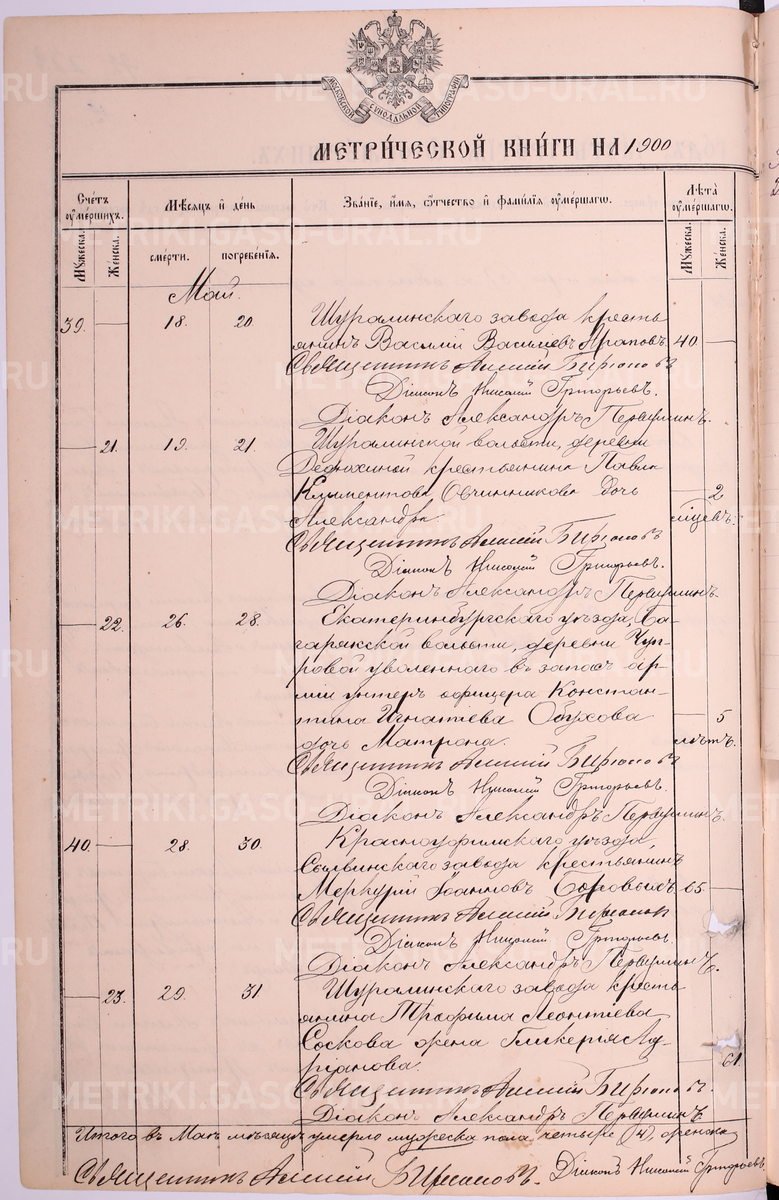 МОСКОВСКОЙ СИНОДАЛЬНОЙ ТИПОГРАФІИ
МЕТРИ́ЧЕСКОЙ КНИ́ГИ НА 1900
Сче́тъ оу҆ме́ршихъ.
Мѣсяцъ и҆ де́нь
Зва́ніе, и҆́мя, ѻ҆́тчество и҆ фами́лія оу҆ме́ршагѡ.
Лѣ́та оу҆ме́ршагѡ.
Мꙋжеска.
Же́нска.
сме́рти.
погребе́нія.
Мꙋжеска.
Же́нска.
Май.
39. — 18. 20. Шуралинскаго завода кресть
янинъ Василій Васильевъ Араповъ. 40. —
Священникъ Алексій Бирюковъ
Діаконъ Николай Григорьевъ.
Діаконъ Александръ Первушинъ.
— 21. 19. 21. Шуралинской волости, деревни
крестьянина Павла
Климентова Овчинникова дочь — 2
Александра мѣсяцевъ.
Священникъ Алексій Бирюковъ
Діаконъ Николай Григорьевъ.
Діаконъ Александръ Первушинъ.
— 22. 26. 28. Екатеринбургскаго уѣзда, Ба-
гарякской волости, деревни
уволеннаго въ запасъ ар-
міи унтеръ офицера Констан-
тина Игнатіева Обухова — 5
дочь Матрона. лѣтъ.
Священникъ Алексій Бирюковъ
Діаконъ Николай Григорьевъ.
Діаконъ Александръ Первушинъ.
40. — 28. 30. Красноуфимскаго уѣзда,
Сылвинскаго завода крестьянинъ
Меркурій Іоанновъ Боровыхъ 65 —
Священникъ Алексій Бирюковъ
Діаконъ Николай Григорьевъ.
Діаконъ Александръ Первушинъ.
— 23. 29. 31 Шуралинскаго завода кресть
янина Трофима Леонтіева
Соскова жена Гликерія Ад-
ріанова. — 61.
Священникъ Алексій Бирюковъ.
Діаконъ Александръ Первушинъ
Итого въ Маѣ мѣсяцѣ умерло мужеска пола четыре (4), женска
Священникъ Алексій Бирюковъ. Діаконъ Николай Григорьевъ
METRIKI.GASO-URAL.RU